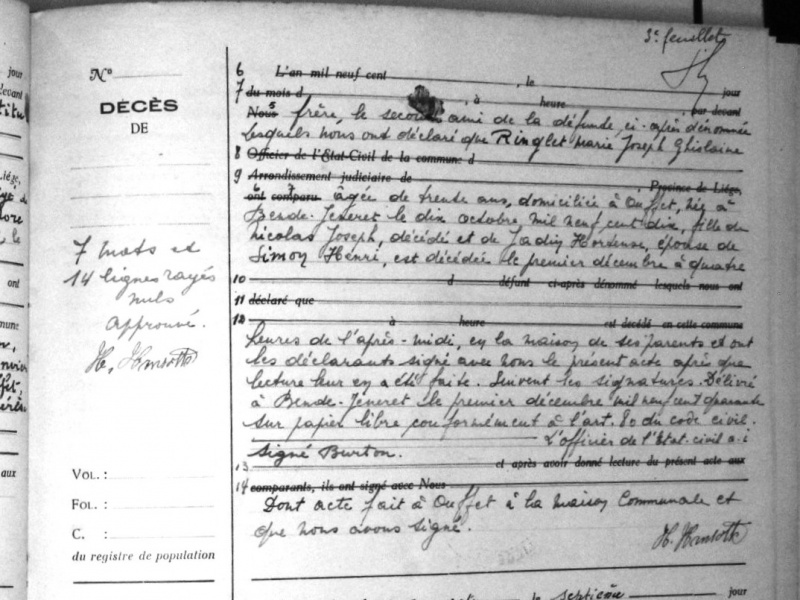 3e feuillet
jour
devant
Liége,
ont
aux
No
DÉCÈS
DE
7 mots et
14 lignes rayés
nuls
approuvé.
VOL. :
FOL. :
C. :
du registre de population
6 L'an mil neuf cent , le jour
7 du mois d , à heure par devant
Nous frère, le second ami de la défunte, ci-après dénommée
lesquels nous ont déclaré que Ringlet Marie Joseph Ghislaine
8 Officier de l'Etat-Civil de la commune d
9 Arrondissement judiciaire de , Province de Liége,
6 7
ont comparu âgée de trente ans, domiciliée à Ouffet, née à
Bende-Jeneret le dix octobre mil neuf cent dix, fille de
Nicolas Joseph, décédé et de Jadin Hortense, épouse de
Simon Henri, est décédée le premier décembre à quatre
10 d défunt ci-après dénommé lesquels nous ont
11 déclaré que
12 à heure est décédé en cette commune
heures de l'après-midi, en la maison de ses parents et ont
les déclarants signé avec nous le présent acte après que
lecture leur en a été faite. Suivent les signatures. Délivré
à Bende-Jeneret le premier décembre mil neuf cent quarante
sur papier libre conformément à l'art. 80 du code civil.
L'officier de l'Etat-civil a.i
signé Burton.
13 et après avoir donné lecture du présent acte aux
14 comparants, ils ont signé avec Nous
Dont acte fait à Ouffet à la maison Communale et
que nous avons signé.
le septième jour